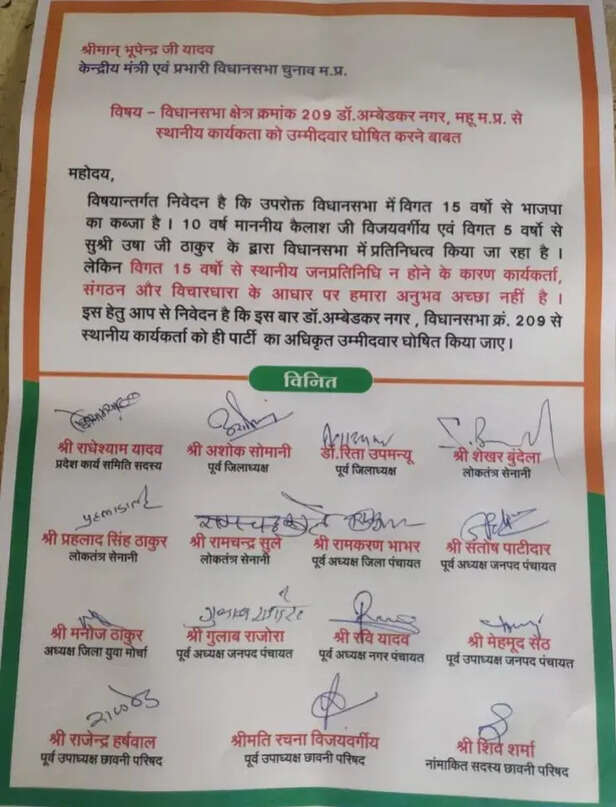 श्रीमान् भूपेन्द्र जी यादव
केन्द्रीय मंत्री एवं प्रभारी विधानसभा चुनाव म.प्र.
विषय - विधानसभा क्षेत्र क्रमांक 209 डॉ.अम्बेडकर नगर, महू म.प्र. से
स्थानीय कार्यकता को उम्मीदवार घोषित करने बाबत
महोदय,
विषयान्तर्गत निवेदन है कि उपरोक्त विधानसभा में विगत 15 वर्षो से भाजपा
का कब्जा है । 10 वर्ष माननीय कैलाश जी विजयवर्गीय एवं विगत 5 वर्षो से
सुश्री उषा जी ठाकुर के द्वारा विधानसभा में प्रतिनिधत्व किया जा रहा है ।
लेकिन विगत 15 वर्षो से स्थानीय जनप्रतिनिधि न होने के कारण कार्यकर्ता,
संगठन और विचारधारा के आधार पर हमारा अनुभव अच्छा नहीं है ।
इस हेतु आप से निवेदन है कि इस बार डॉ.अम्बेडकर नगर , विधानसभा क्रं. 209 से
स्थानीय कार्यकर्ता को ही पार्टी का अधिकृत उम्मीदवार घोषित किया जाए ।
विनित
श्री राधेश्याम यादव श्री अशोक सोमानी डॉ.रिता उपमन्यू श्री शेखर बुंदेला
प्रदेश कार्य समिति सदस्य पूर्व जिलाध्यक्ष पूर्व जिलाध्यक्ष लोकतंत्र सेनानी
श्री प्रहलाद सिंह ठाकुर श्री रामचन्द्र सुले श्री रामकरण भाभर श्री संतोष पाटीदार
लोकतंत्र सेनानी लोकतंत्र सेनानी पूर्व अध्यक्ष जिला पंचायत पूर्व अध्यक्ष जनपद पंचायत
श्री मनोज ठाकुर श्री गुलाब राजोरा श्री रवि यादव श्री मेहमूद सेठ
अध्यक्ष जिला युवा मोर्चा पूर्व अध्यक्ष जनपद पंचायत पूर्व अध्यक्ष नगर पंचायत पूर्व उपाध्यक्ष जनपद पंचायत
श्री राजेन्द्र हर्षवाल श्रीमति रचना विजयवर्गीय श्री शिव शर्मा
पूर्व उपाध्यक्ष छावनी परिषद पूर्व उपाध्यक्ष छावनी परिषद नांमाकित सदस्य छावनी परिषद